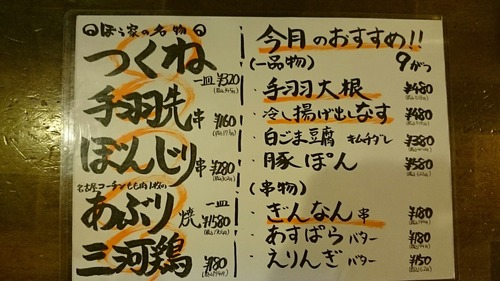 ぼぅ家の名物
つくね
一皿 ¥320
手羽先 串 ¥160
ぼんじり 串 ¥280
名古屋コーチンもも肉1枚の
あぶり焼 一皿 ¥1580
三河鶏 ¥180
今月のおすすめ!!
9がつ
(一品物)
・手羽大根 ¥480
・冷し揚げ出しなす ¥480
・白ごま豆腐 キムチダレ ¥380
・豚ぽん ¥580
(串物)
・ぎんなん 串 ¥180
・あすぱら バター ¥180
・えりんぎ バター ¥150